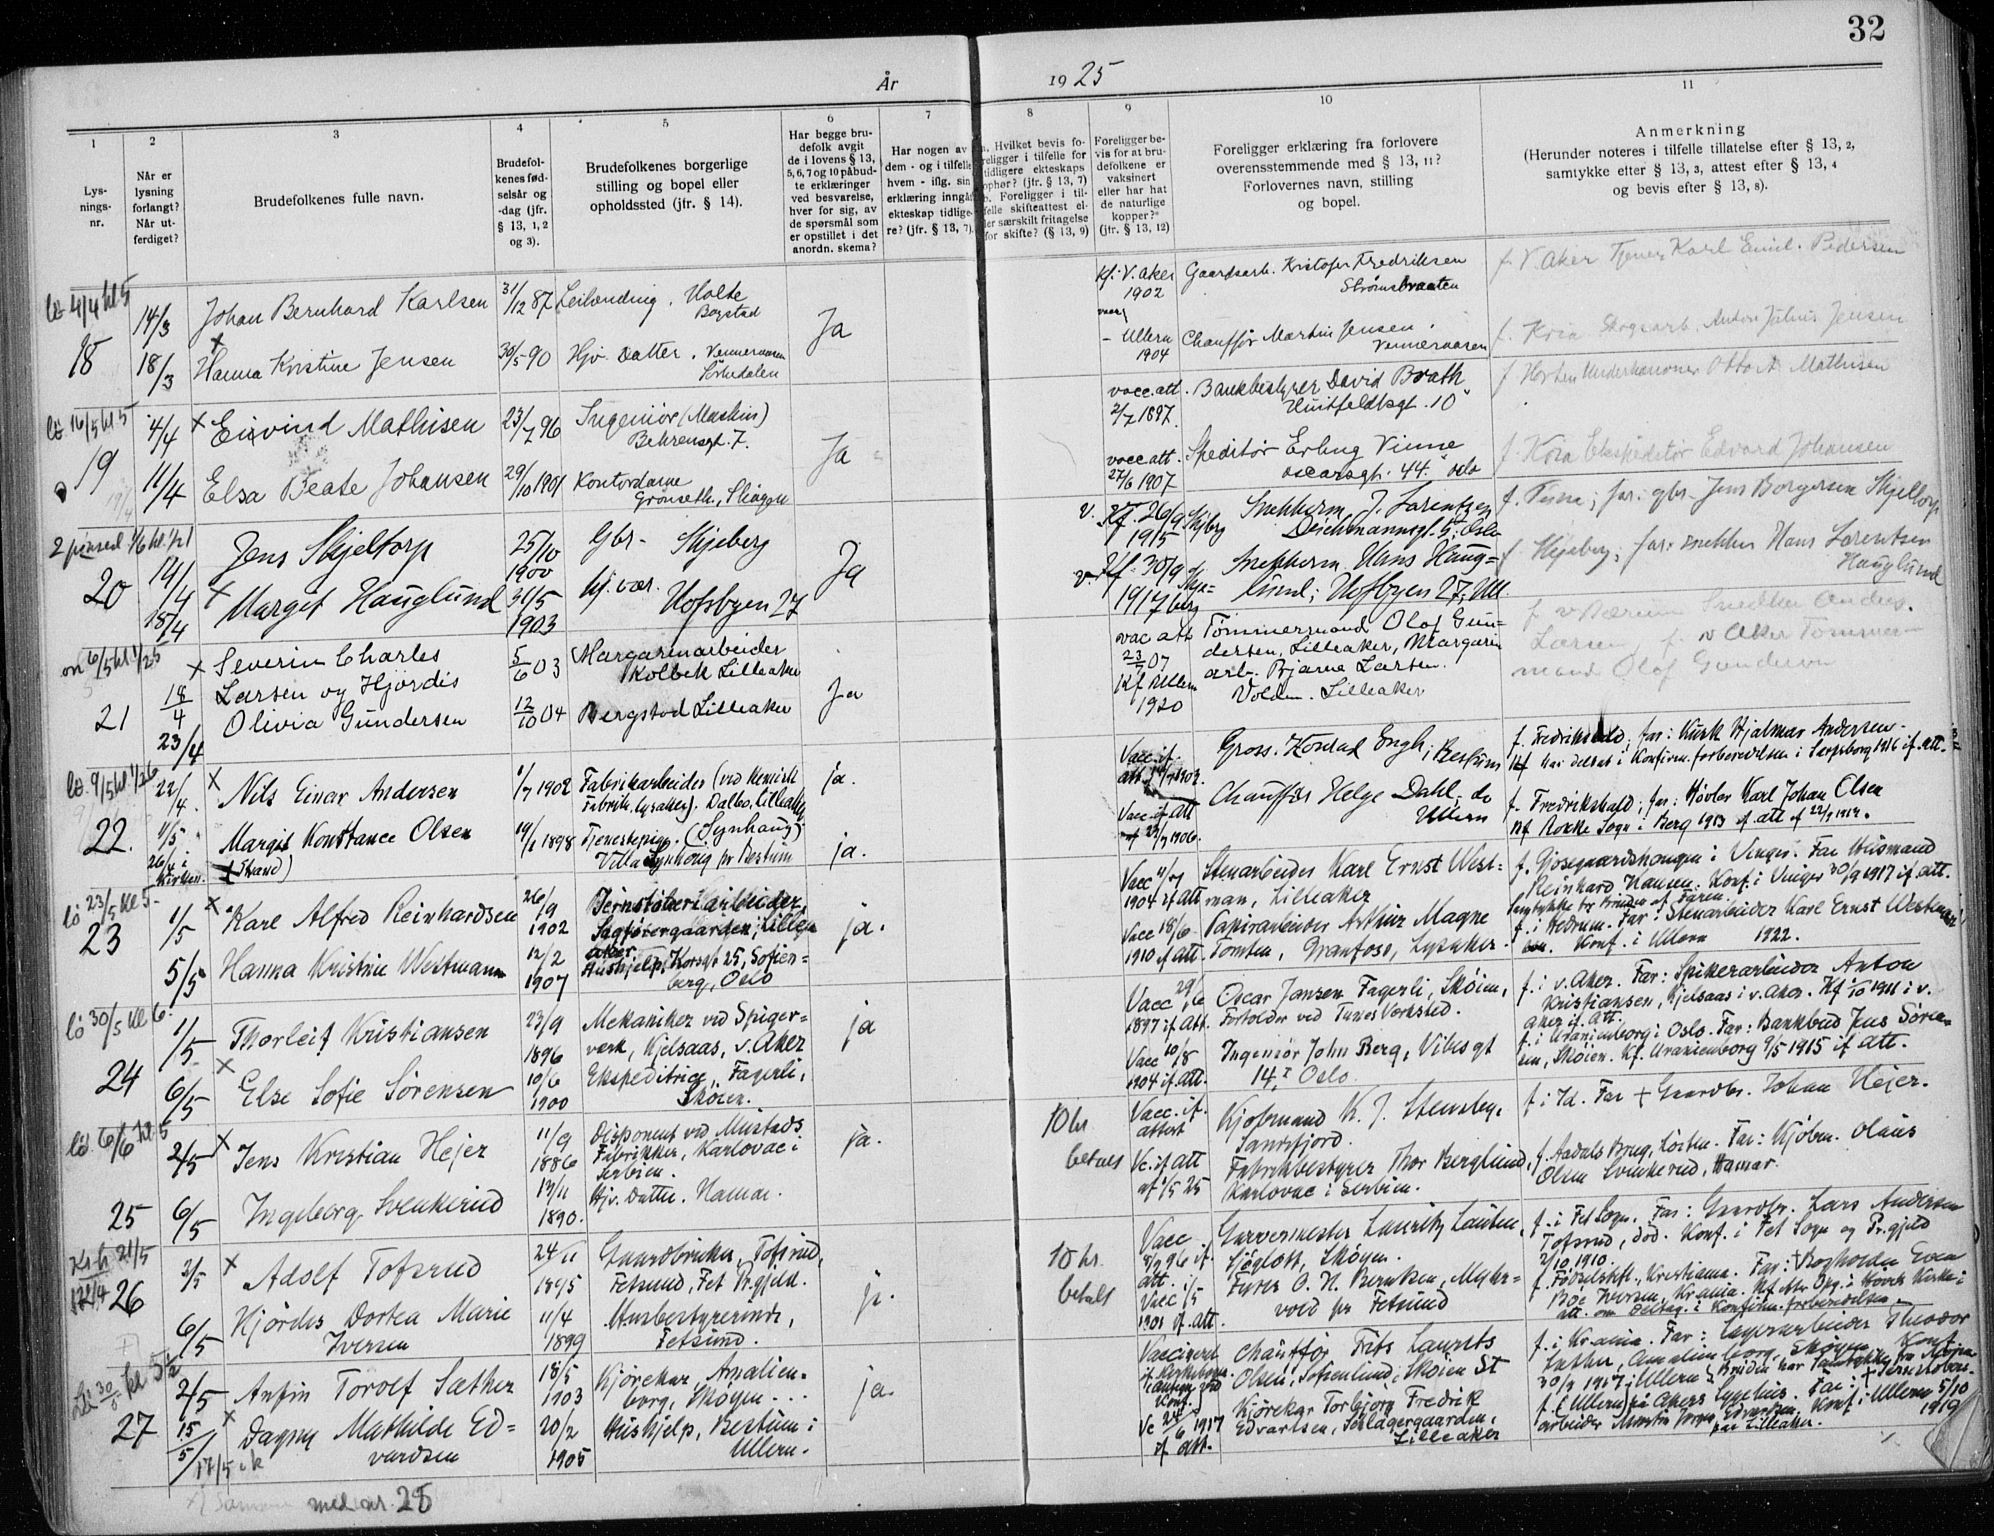 32
År 1925
1 2 3 4 5 6 7 8 9 10 11
Lys-
nings-
nr.
Når er
lysning
forlangt?
Når ut-
ferdiget?
Brudefolkenes fulle navn.
Brudefol-
kenes fød-
selsår og
-dag (jfr.
§ 13, 1, 2
og 3).
Brudefolkenes borgerlige
stilling og bopel eller
opholdssted (jfr. § 14).
Har begge bru-
defolk avgit
de i lovens § 13,
5, 6, 7 og 10 påbud-
te erklæringer
ved besvarelse,
hver for sig, av
de spørsmål som
er opstillet i det
anordn. skema?
Har nogen av
dem - og i tilfelle
hvem - iflg. sin
erklæring inngåt
ekteskap tidlige-
re? (jfr. § 13, 7).
a. Hvilket bevis fo-
religger i tilfelle for
tidligere ekteskaps
ophør? (jfr. § 13, 7)
b. Foreligger i til-
felle skifteattest el-
ler særskilt fritagelse
for skifte? (§ 13, 9)
Foreligger be-
vis for at bru-
defolkene er
vaksinert
eller har hat
de naturlige
kopper?
(jfr. § 13, 12)
Foreligger erklæring fra forlovere
overensstemmende med § 13, 11?
Forlovernes navn, stilling
og bopel.
Anmerkning
(Herunder noteres i tilfelle tillatelse efter § 13, 2,
samtykke efter § 13, 3, attest efter § 13, 4
og bevis efter § 13, 8).
lø 4/4 kl 5
18
14/3 Johan Bernhard Karlsen 31/12 87 Leilending, Holte
Bogstad
Ja
Kf. V. Aker
1902
Gaardsarb. Kristofer Fredriksen
Strømsbraaten
f. V. Aker Tjener Karl Emil Pedersen
18/3 Hanna Kristine Jensen 30/5 90 Hjv. Datter, Vennersaasen
Sørkedalen
Ullern
1904
Chauffør Martin Jensen,
f. Kria Skogsarb. Anton Julius Jensen
lø 16/5 kl 5
19
4/4 × Eivind Mathisen 23/7 96 Ingeniør (Maskin)
Behrensgt. 7.
Ja
vacc. att.
2/7 1897.
Bankbestyrer David Brath
Huitfeldtsgt. 10
f. Horten Underkanoner Otto A. Mathisen
11/4 Elsa Beate Johansen 29/10 1901 Kontordame
Slingen
vacc. att.
27/6 1907
Speditør Erling Vinne
Oscarsgt. 44. Oslo
f. Kria Ekspeditør Edvard Johansen
2 pinsed 1/6 kl. 1/2 1
20
14/4 Jens Skjeltorp 25/10
1900
Gbr. Skjeberg
Ja
v. Kf. 26/9
1915
Snekkerm. J. Larentzen
Deichmannsgt. 5, Oslo
f. Tune; far: gbr. Jens Borgersen Skjeltorp
18/4 × Margit Hauglund 31/5
1903
Hj. vær. Hofsbyen 27
v. Kf. 30/9
1917
Snekkerm. Hans Haug-
lund; Hofsbyen 27, Ull
f. Skjeberg, far: snekker Hans Lorentsen
Hauglund
on 6/5 kl 1/2 5
21
18/4
23/4
× Severin Charles
Larsen og Hjørdis
Olivia Gundersen
5/6 03
12/10 04
Margarinarbeider
Kolbek Lilleaker
Bergstad Lilleaker
Ja
vac att
23/7 07
Kf Ullern
1920
Tømmermand Olof Gun-
dersen, Lilleaker, Margarin
arb. Bjarne Larsen.
Volden. Lilleaker
f. v Bærum Snedker Anders
Larsen, f. v Aker Tømmer-
mand Olof Gundersen
lø. 9/5 kl 1/2 6
22.
22/4. × Nils Einar Andersen 1/7 1902 Fabrikarbeider (ved Kemisk
Fabrik, Lysaker). Dalbo, Lilleaker
ja.
Vacc. if.
Gross. Konrad Engh, Bestum
f. Fredrikshald; far: Kusk Hjalmar Andersen.
Har deltat i Konfirm. forberedelsen i Sarpsborg 1916 if. att.
1/5 Margit Konstance Olsen
(Strand)
19/1 1898 Tjenestepige. (Lynhaug)
Villa Lynhaug pr Bestum
ja.
Vacc. if Att
af 22/9 1906.
Chauffør Helge Dahl, do
Ullern
f. Fredrikshald; far: Høvler Karl Johan Olsen
Kf Rokke Sogn i Berg 1913 if. att
lø 23/5 kl 5-
23
1/5 × Karl Alfred Reinhardsen 26/9
1902
Jernstøberiarbeider,
Sagførergaarden, Lille-
aker
ja.
Vacc 11/7
1904 if att
Stenarbeider Karl Ernst West-
man, Lilleaker
f. Gjøsegaardshougen i Vinger. Far Husmand
Reinhard Hansen. Konf. i Vinger 30/9 1917 if. att.
Samtykke for Bruden af Faren.
5/5 Hanna Kristine Westmann 12/2
1907
Hushjelp, Korsgt 25, Sofien-
berg, Oslo
Vacc 18/6
1910 if att.
Papirarbeider Arthur Magne
Tomten, Granfoss, Lysaker.
f. i Hedrum. Far: Stenarbeider Karl Ernst Westman,
Konf. i Ullern 1922.
lø 30/5 kl 6.
24
1/5. Thorleif Kristiansen 23/9
1896
Mekaniker ved Spiger-
verk, Kjelsaas, v. Aker
ja
Vacc 29/6
1897 if att.
Oscar Jansen Fagerli, Skøien,
Forholder ved Tunes Værksted.
f. i v. Aker. Far: Spikerarbeider Anton
Kristiansen, Kjelsaas i v. Aker. Kf 1/10 1911 i v.
Aker if. Att.
6/5 × Else Sofie Sørensen 10/6
1900
Ekspeditrice, Fagerli,
Skøien.
Vacc 10/8
1904 if. att.
Ingeniør John Berg, Vibesgt
14, I Oslo
f. i Uranienborg i Oslo. Far: Bankbud Jens Søren-
sen, Skøien. Kf. Uranienborg 9/5 1915 if att.
lø 6/6 kl 5
25
2/5 × Jens Kristian Hejer 11/9
1886
Disponent ved Mustads
Fabrikker, Karlovac i
Serbien.
ja.
10 kr.
betalt
Vacc. if.
attest
Kjøbmand K. J. Stensby,
Sandefjord.
f. i Id. Far + Gaardbr. Johan Hejer.
6/5 Ingeborg Svenkerud 13/11
1890.
Hjv. Datter. Hamar.
Vc. if att
af 1/5 25
Fabrikbestyrer Thor Berglund,
Karlovac i Serbien.
f. Aadals Brug, Løiten. Far: Kjøbm. Olaus
Olsen Svenkerud, Hamar.
21/5
26
2/5 × Adolf Tofsrud 24/11
1895
Gaardbruker, Tofsrud,
Fetsund, Fet Pr.gjeld.
ja.
10 kr.
betalt
Vacc
8/9 96 if.
att.
Garvermester Lauritz Lauten,
Sjøglott, Skøyen.
f. i Fet Sogn. Far: Gaardbr. Lars Andersen
Tofsrud, død. Konf. i Fet Sogn og Pr.gjeld
2/10 1910.
6/5 Hjørdis Dortea Marie
Iversen
11/4
1899
Husbestyrerinde,
Fetsund.
Vacc 1/5
1901 if. att.
Fyrer O. N. Berntsen, Myhr-
vold pr Fetsund
f. Fødselsstift., Kristiania. Far: + Bogholder Even
Boe Iversen, Kr.ania.
att. om Deltag. i Konfirm. forberedelsen.
kl 5 1/2
27
2/5 Anfin Torolf Sæther 18/5
1903
Kjørekar, Amalien-
borg, Skøyen...
ja.
Vaccineret
if. Kirkebogen
Chauffør Frits Laurits
Olsen, Sofienlund, Skøien St
f. i Kr.ania. Far: Lagerarbeider Theodor
Sæther, Amalienborg, Skøyen. Konf.
30/9 1917 i Ullern.
15/5 × Dagny Mathilde Ed-
vardsen
20/2
1905
Hushjelp, Bestum i
Ullern.
1917
if att.
Kjørekar Torbjørn Fredrik
Edvartsen, Sollagergaarden,
Lilleaker
Konf i Ullern 5/10
1919
17/5
med nr. 25